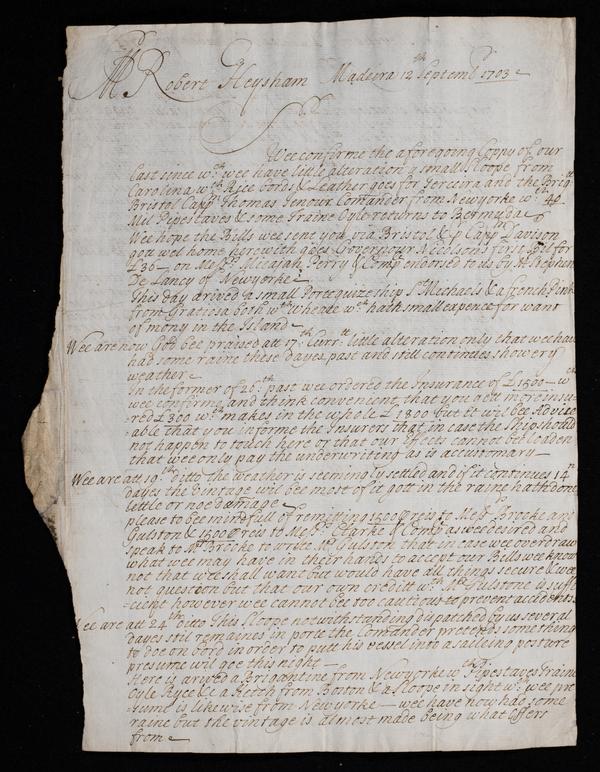 Mr Robert Heysham Madeira 12th Septembr 1703
Sr
Wee confirme the aforegoing Coppy of our
Last since wch wee have little alteration a small Sloope from
Carolina wth Ryce bords & Leather goes for Tercera and the Brigtt
Bristol Capt Thomas Jenour Comander from Newyorke wth 40
Mil Pipestaves & some Traine Oyle returns to Bermuda
Wee hope the Bills wee sent you via Bristol & p Capt Davison
got wel home herewith goes Governour Neilsons first bil for
£36 on Messrs Micajah Perry & Compa endorsed to us by Mr Stephen
De Lancy of Newyorke
This day arived a small Portequize ship St Michaels & a french Pink
from Gratiosa both wth Wheate wch hath small expence for want
of mony in the Island
Wee are now God bee praised att 17th Currtt little alteration only that wee have
had some raine these dayes past and still continues showery
weather
In the former of 26th past wee ordered the Insurance of £1500 wch
wee confirme and think convenient that you gett more insu-
-red £300 wch makes in the whole £1800 but it wil bee Advice
-able that you informe the Insurers that in case the Ship should
not happen to touch here or that our effects cannot bee loaden
that wee only pay the underwriting as is accustomary
Wee are att 19th ditto the weather is seemingly settled and if it continues 14en
dayes the vintage wil bee most of it gott in the raine hath done
little or noe damage
please to bee mindfull of remitting reis to Messrs Brooke and
Gulston & reis to Messrs Clarke & Comp as wee desired and
speak to Mr Brooke to write Mr Gulston that in case wee overdraw
what wee may have in their hands to accept our Bills wee know
not that wee shall want but would have all things secure & wee
not question but that our own creditt wth Mr Gulstone is suffi
cient however wee cannot bee too cautious to prevent accidents
Wee are att 24th ditto This Sloope notwithstanding dispatched by us several
dayes stil remaines in porte the Comander pretends something
to doe on bord in order to putt his vessel into a saileing posture
presume wil goe this night
Here is arived a Brigantine from Newyorke wth Pipestaves Traine
Oyle Ryce & a Ketch from Boston & a sloope in sight wch wee pre
sume is likewise from Newyorke wee have now had some
raine but the vintage is almost made being what Offers
from